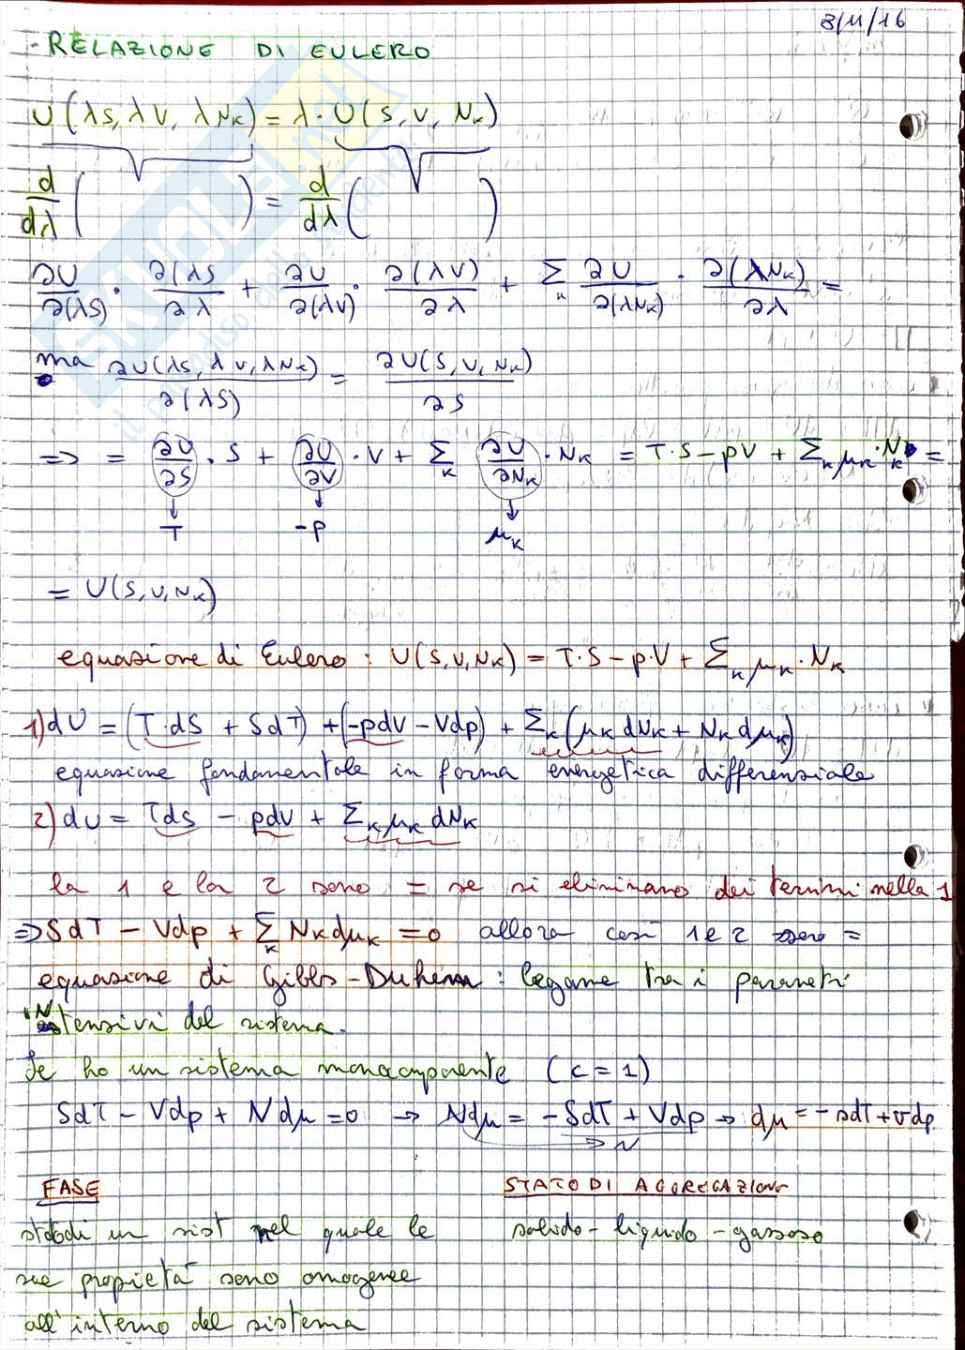 8/11/16
- RELAZIONE DI EULERO
U(λS, λV, λNk) = λ·U(S, V, Nk)
d/dλ ( ) = d/dλ ( )
∂U/∂(λS) · ∂(λS/∂λ + ∂U/∂(λV) · ∂(λV)/∂λ + Σk ∂U/∂(λNk) · ∂(λNk)/∂λ =
ma ∂U(λS, λV, λNk)/∂(λS) = ∂U(S, V, Nk)/∂S
=> = ∂U/∂S · S + ∂U/∂V · V + Σk ∂U/∂Nk · Nk = T·S - pV + Σk μk·Nk =
T -p μk
= U(S, V, Nk)
equazione di Eulero: U(S,V,Nk) = T·S - p·V + Σk μk·Nk
1) dU = (T·dS + SdT) + (-pdV - Vdp) + Σk (μk dNk + Nk dμk)
equazione fondamentale in forma energetica differenziale
2) dU = TdS - pdV + Σk μk dNk
la 1 e la 2 sono = se si eliminano dei termini nella 1
=> SdT - Vdp + Σk Nk dμk = 0 allora così 1 e 2 sono =
equazione di Gibbs-Duhem: legame tra i parametri
INtensivi del sistema.
Se ho un sistema monocomponente (c=1)
SdT - Vdp + Ndμ = 0 → Ndμ = -SdT + Vdp → dμ = -sdT + vdp
N
FASE
STATO DI AGGREGAZIONE
stato di un sist nel quale le
solido - liquido - gassoso
sue proprietà sono omogenee
all'interno del sistema